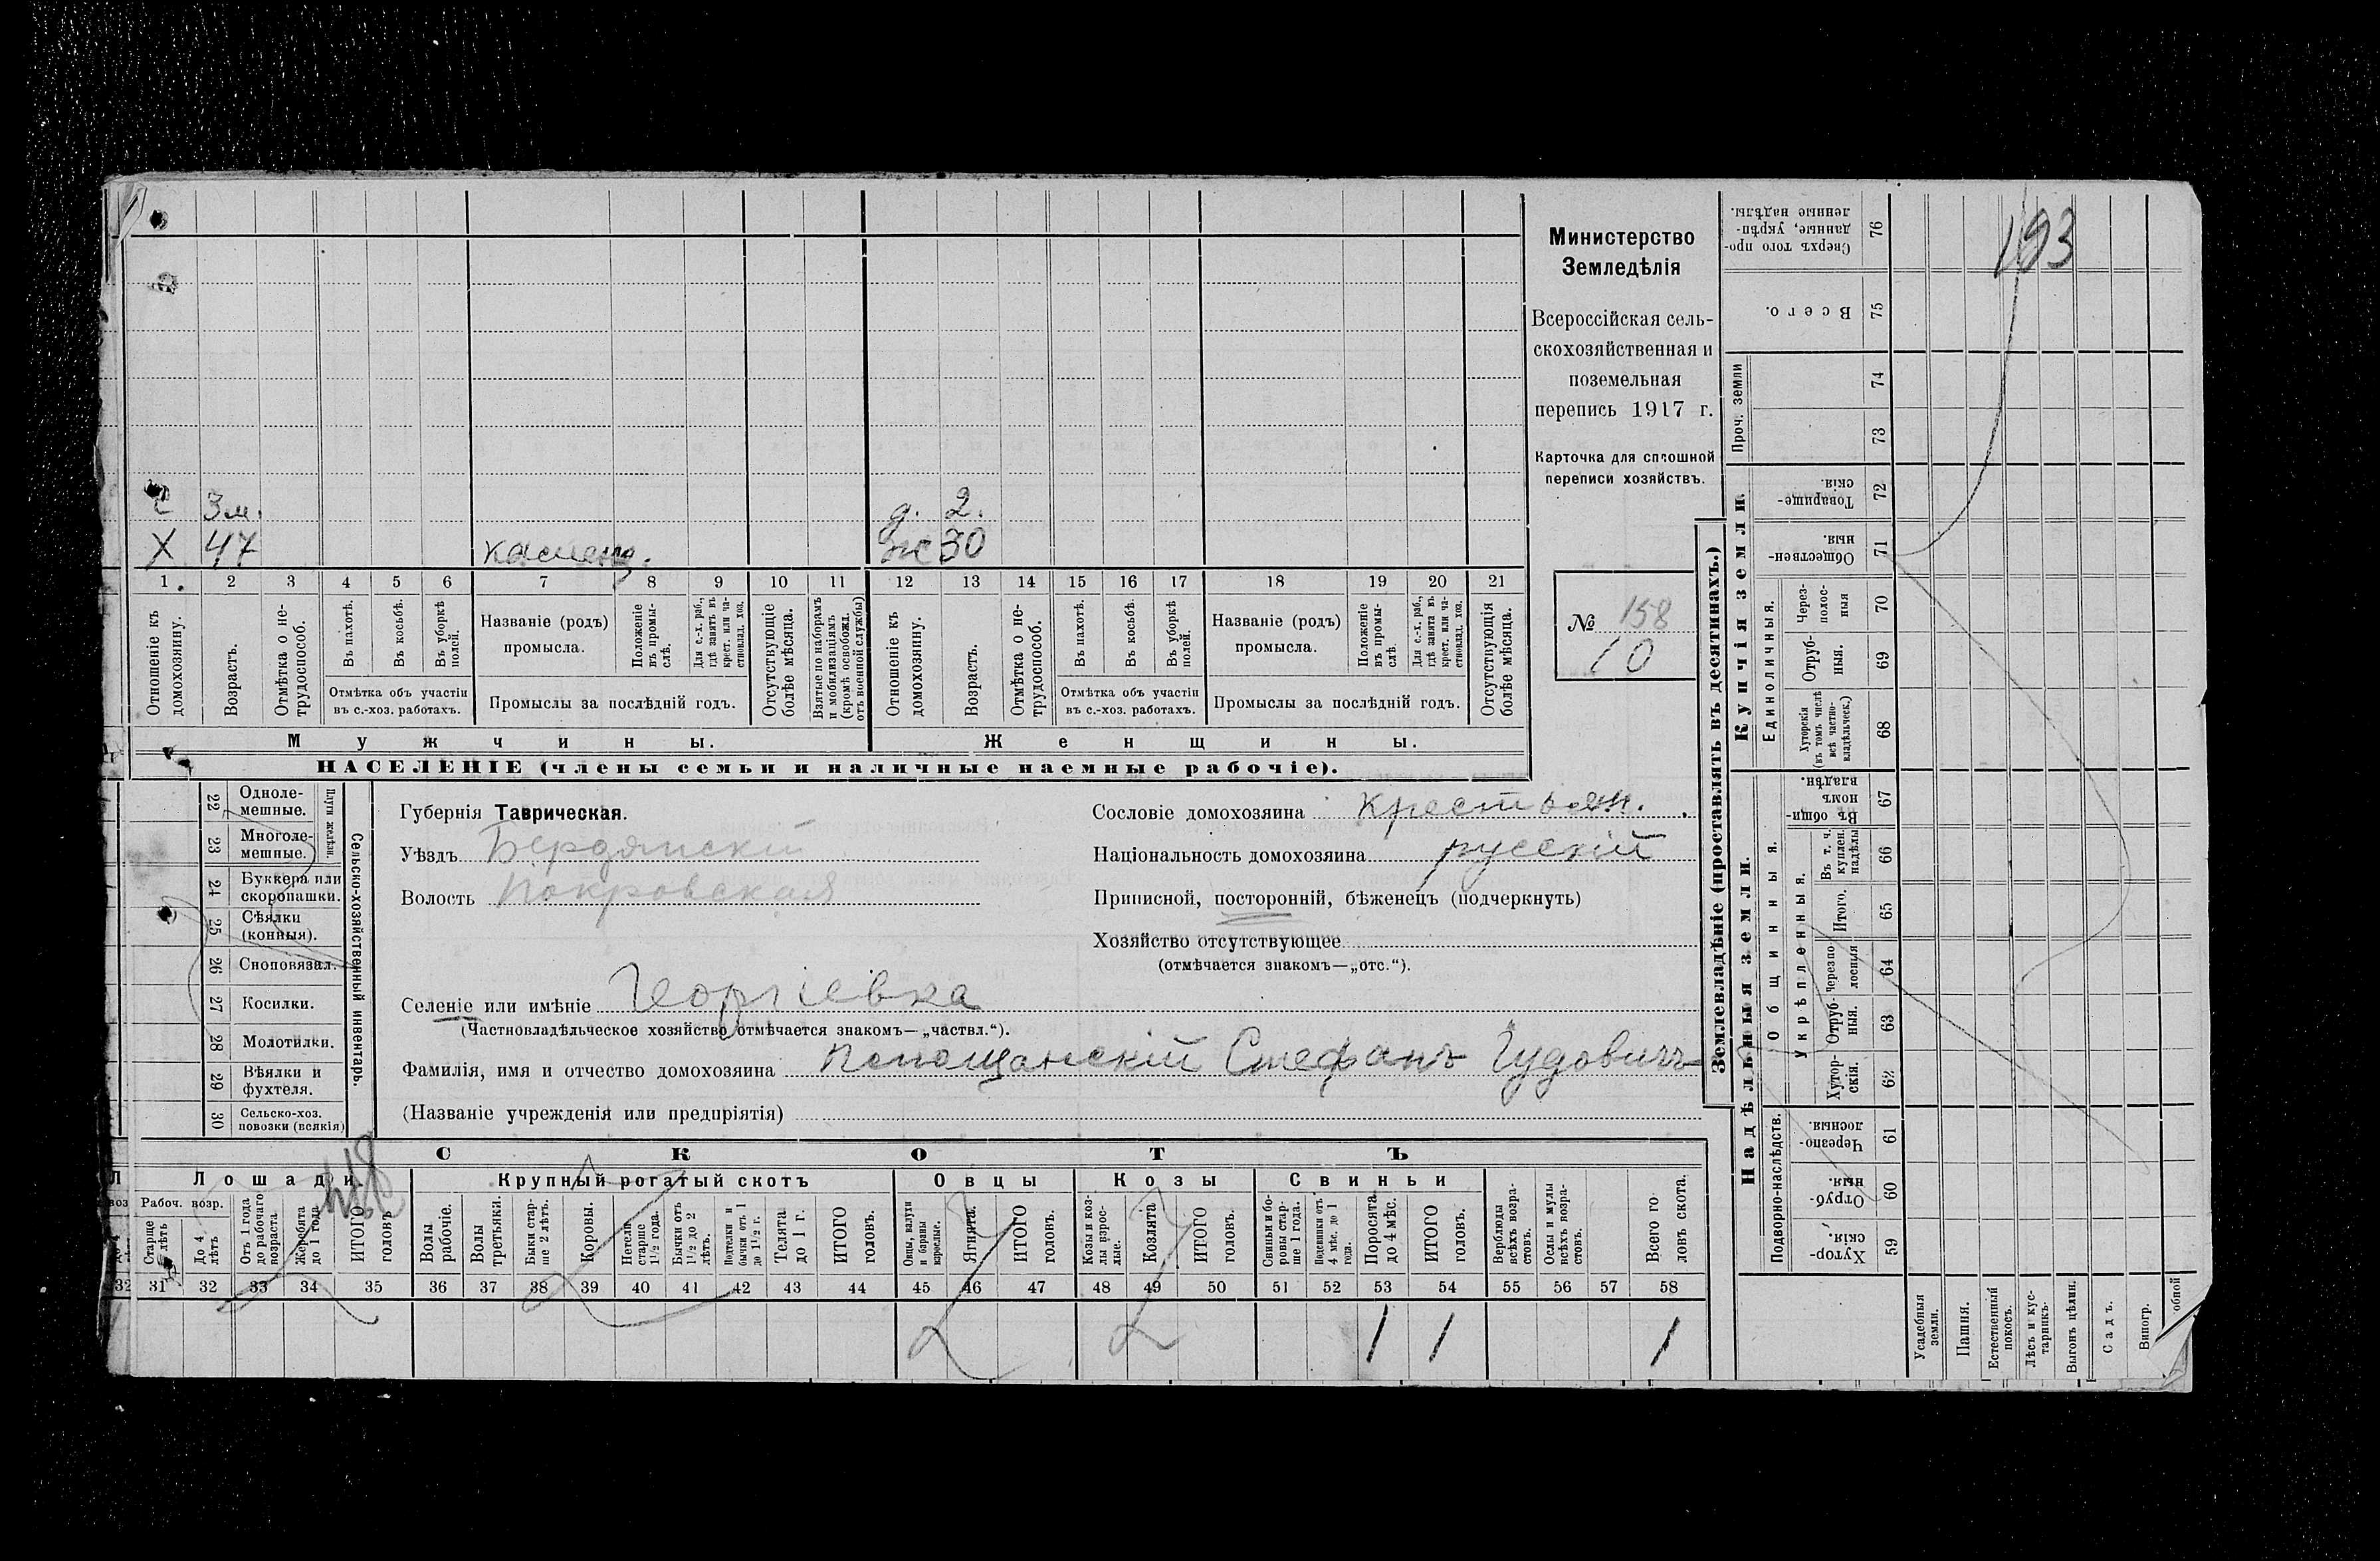 Министерство
Земледѣлія
Всероссійская сель-
скохозяйственная и
поземельная
перепись 1917 г.
Карточка для сплошной
переписи хозяйствъ.
№ 158
10
193
с 3 м.
д. 2.
Х 47
каменщ.
ж 30
1 2 3 4 5 6 7 8 9 10 11 12 13 14 15 16 17 18 19 20 21
Отношеніе къ домохозяину.
Возрастъ.
Отмѣтка о не-трудоспособ.
Въ пахотѣ.
Въ косьбѣ.
Въ уборкѣ полей.
Отмѣтка объ участіи
въ с.-хоз. работахъ.
Названіе (родъ)
промысла.
Положеніе въ промы-слѣ.
Для с.-х. раб., гдѣ занятъ въ крест. или ча-стновлад. хоз.
Промыслы за послѣдній годъ.
Отсутствующіе болѣе мѣсяца.
Взятые по наборамъ и мобилизаціямъ (кромѣ освобожд. отъ военной службы)
Отношеніе къ домохозяину.
Возрастъ.
Отмѣтка о не-трудоспособ.
Въ пахотѣ.
Въ косьбѣ.
Въ уборкѣ полей.
Отмѣтка объ участіи
въ с.-хоз. работахъ.
Названіе (родъ)
промысла.
Положеніе въ промы-слѣ.
Для с.-х. раб., гдѣ занята въ крест. или ча-стновлад. хоз.
Промыслы за послѣдній годъ.
Отсутствующія болѣе мѣсяца.
Мужчины.
Женщины.
НАСЕЛЕНІЕ (члены семьи и наличные наемные рабочіе).
Сельско-хозяйственный инвентарь.
Плуги желѣзн.
22 Одноле-
мешные.
23 Многоле-
мешные.
24 Буккера или
скоропашки.
25 Сѣялки
(конныя).
26 Сноповязал.
27 Косилки.
28 Молотилки.
29 Вѣялки и
фухтеля.
30 Сельско-хоз.
повозки (всякія)
Губернія Таврическая.
Уѣздъ Бердянскій
Волость Покровская
Селеніе или имѣніе Георгіевка
(Частновладѣльческое хозяйство отмѣчается знакомъ—„частвл.“).
Сословіе домохозяина Крестьян.
Національность домохозяина русскій
Приписной, посторонній, бѣженецъ (подчеркнуть)
Хозяйство отсутствующее
(отмѣчается знакомъ—„отс.“).
Фамилія, имя и отчество домохозяина Стефанъ
(Названіе учрежденія или предпріятія)
СКОТЪ
Лошади.
Рабоч. возр.
Старше 4 лѣтъ
До 4 лѣтъ
Отъ 1 года до рабочаго возраста
Жеребята до 1 года
ИТОГО головъ
Крупный рогатый скотъ
Волы рабочіе.
Волы третьяки.
Быки стар-ше 2 лѣтъ.
Коровы.
Нетели старше 1½ года.
Бычки отъ 1½ до 2 лѣтъ.
Подтелки и бычки отъ 1 до 1½ г.
Телята до 1 г.
ИТОГО головъ.
Овцы
Овцы, валухи и бараны взрослые.
Ягнята.
ИТОГО головъ.
Козы
Козы и коз-лы взрос-лые.
Козлята
ИТОГО головъ.
Свиньи
Свиньи и бо-ровы стар-ше 1 года.
Подсвинки отъ 4 мѣс. до 1 года.
Поросята до 4 мѣс.
ИТОГО головъ.
Верблюды всѣхъ возра-стовъ.
Ослы и мулы всѣхъ возра-стовъ.
Всего го ловъ скота.
32 31 32 33 34 35 36 37 38 39 40 41 42 43 44 45 46 47 48 49 50 51 52 53 54 55 56 57 58
1 1 1
Землевладѣніе (проставлять въ десятинахъ.)
Купчія земли.
Надѣльныя земли.
Сверхъ того про-данные, укрѣп-ленные надѣлы. 76
Всего. 75
Проч. земли
74
73
Товарище-скія. 72
Обществен-ныя. 71
Единоличныя.
Через-полос-ныя 70
Отруб-ныя. 69
Хуторскія (въ томъ числѣ всѣ частно-владѣльческ.) 68
Общинныя.
Въ общи-номъ владѣн. 67
Укрѣпленныя.
Въ т. ч. куплен. надѣлы 66
Итого. 65
Черезпо-лосныя 64
Отруб-ныя. 63
Хутор-скія. 62
Подворно-наслѣдств.
Черезпо-лосныя. 61
Отруб-ныя. 60
Хутор-скія. 59
Усадебныя земли.
Пашня.
Естественный покосъ.
Лѣсъ и кус-тарникъ.
Выгонъ цѣлин.
Садъ.
Виногр.
обной